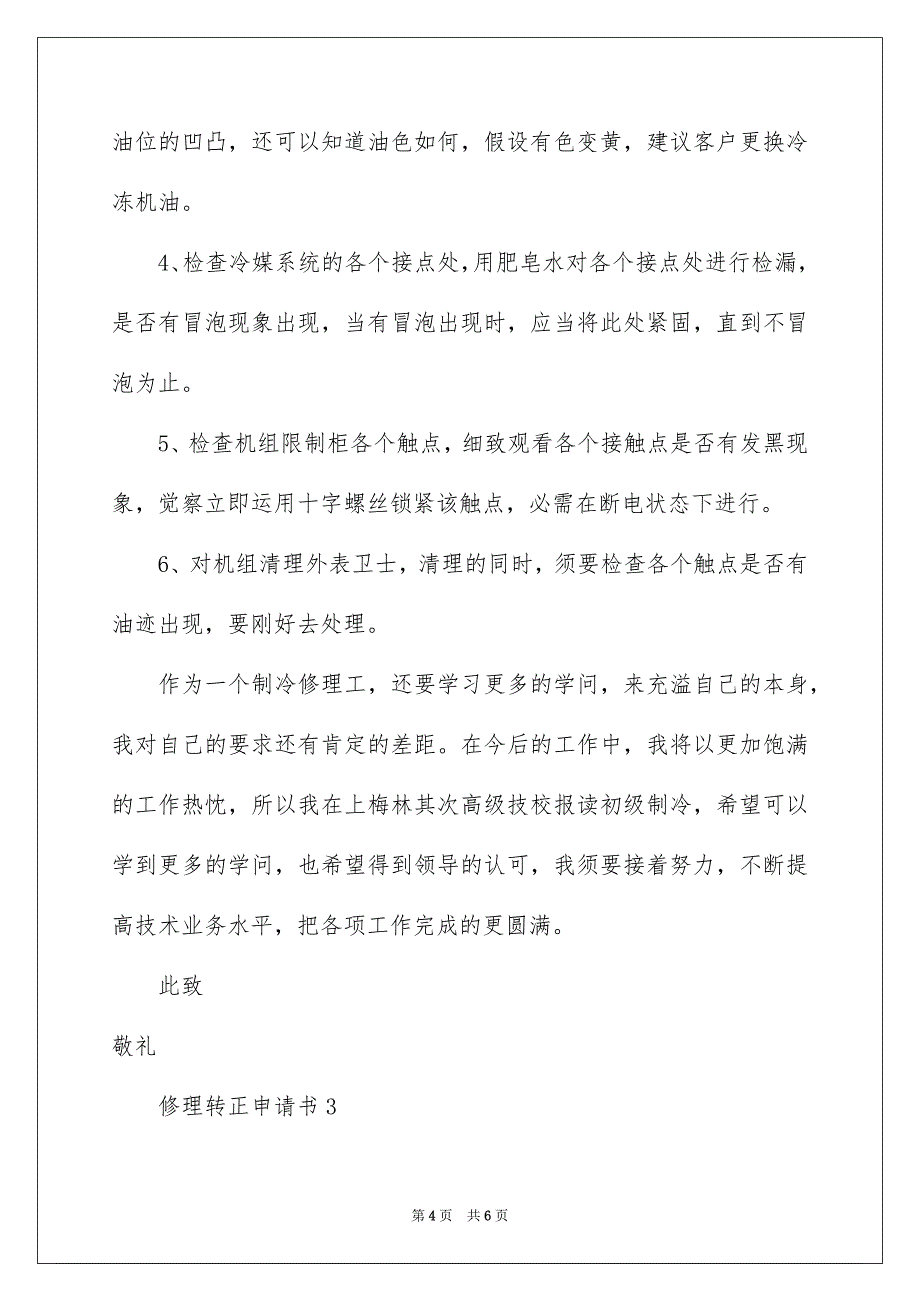 油位的凹凸，还可以知道油色如何，假设有色变黄，建议客户更换冷
冻机油。
4、检查冷媒系统的各个接点处，用肥皂水对各个接点处进行检漏，
是否有冒泡现象出现，当有冒泡出现时，应当将此处紧固，直到不冒
泡为止。
5、检查机组限制柜各个触点，细致观看各个接触点是否有发黑现
象，觉察立即运用十字螺丝锁紧该触点，必需在断电状态下进行。
6、对机组清理外表卫士，清理的同时，须要检查各个触点是否有
油迹出现，要刚好去处理。
作为一个制冷修理工，还要学习更多的学问，来充溢自己的本身，
我对自己的要求还有肯定的差距。在今后的工作中，我将以更加饱满
的工作热忱，所以我在上梅林其次高级技校报读初级制冷，希望可以
学到更多的学问，也希望得到领导的认可，我须要接着努力，不断提
高技术业务水平，把各项工作完成的更圆满。
此致
敬礼
修理转正申请书 3
第 4 页 共 6 页